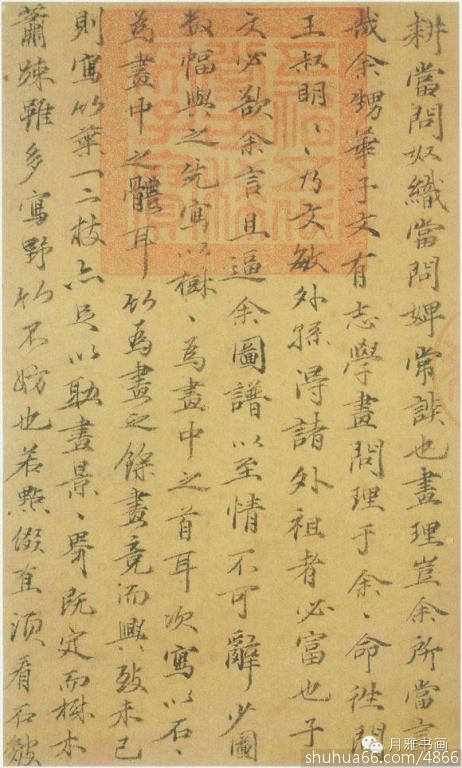 耕當問奴織當問婢常談也畫理豈余所當言
哉余甥華子文有志學畫問理于余〻命往問
王叔明〻乃文敏外孫得諸外祖者必富也子
文必欲余言且逼余圖譜以至情不可辭少圖
數幅與之先寫以樹〻為畫中之首耳次寫以石〻
為畫中之體耳竹為畫之餘畫竟而興致未已
則寫竹葉一二枝亦足以助畫景〻界既定而樹木
蕭疎雖多寫野竹不妨也若點綴直須看石皴
月雅书画
shuhua66.com/4866